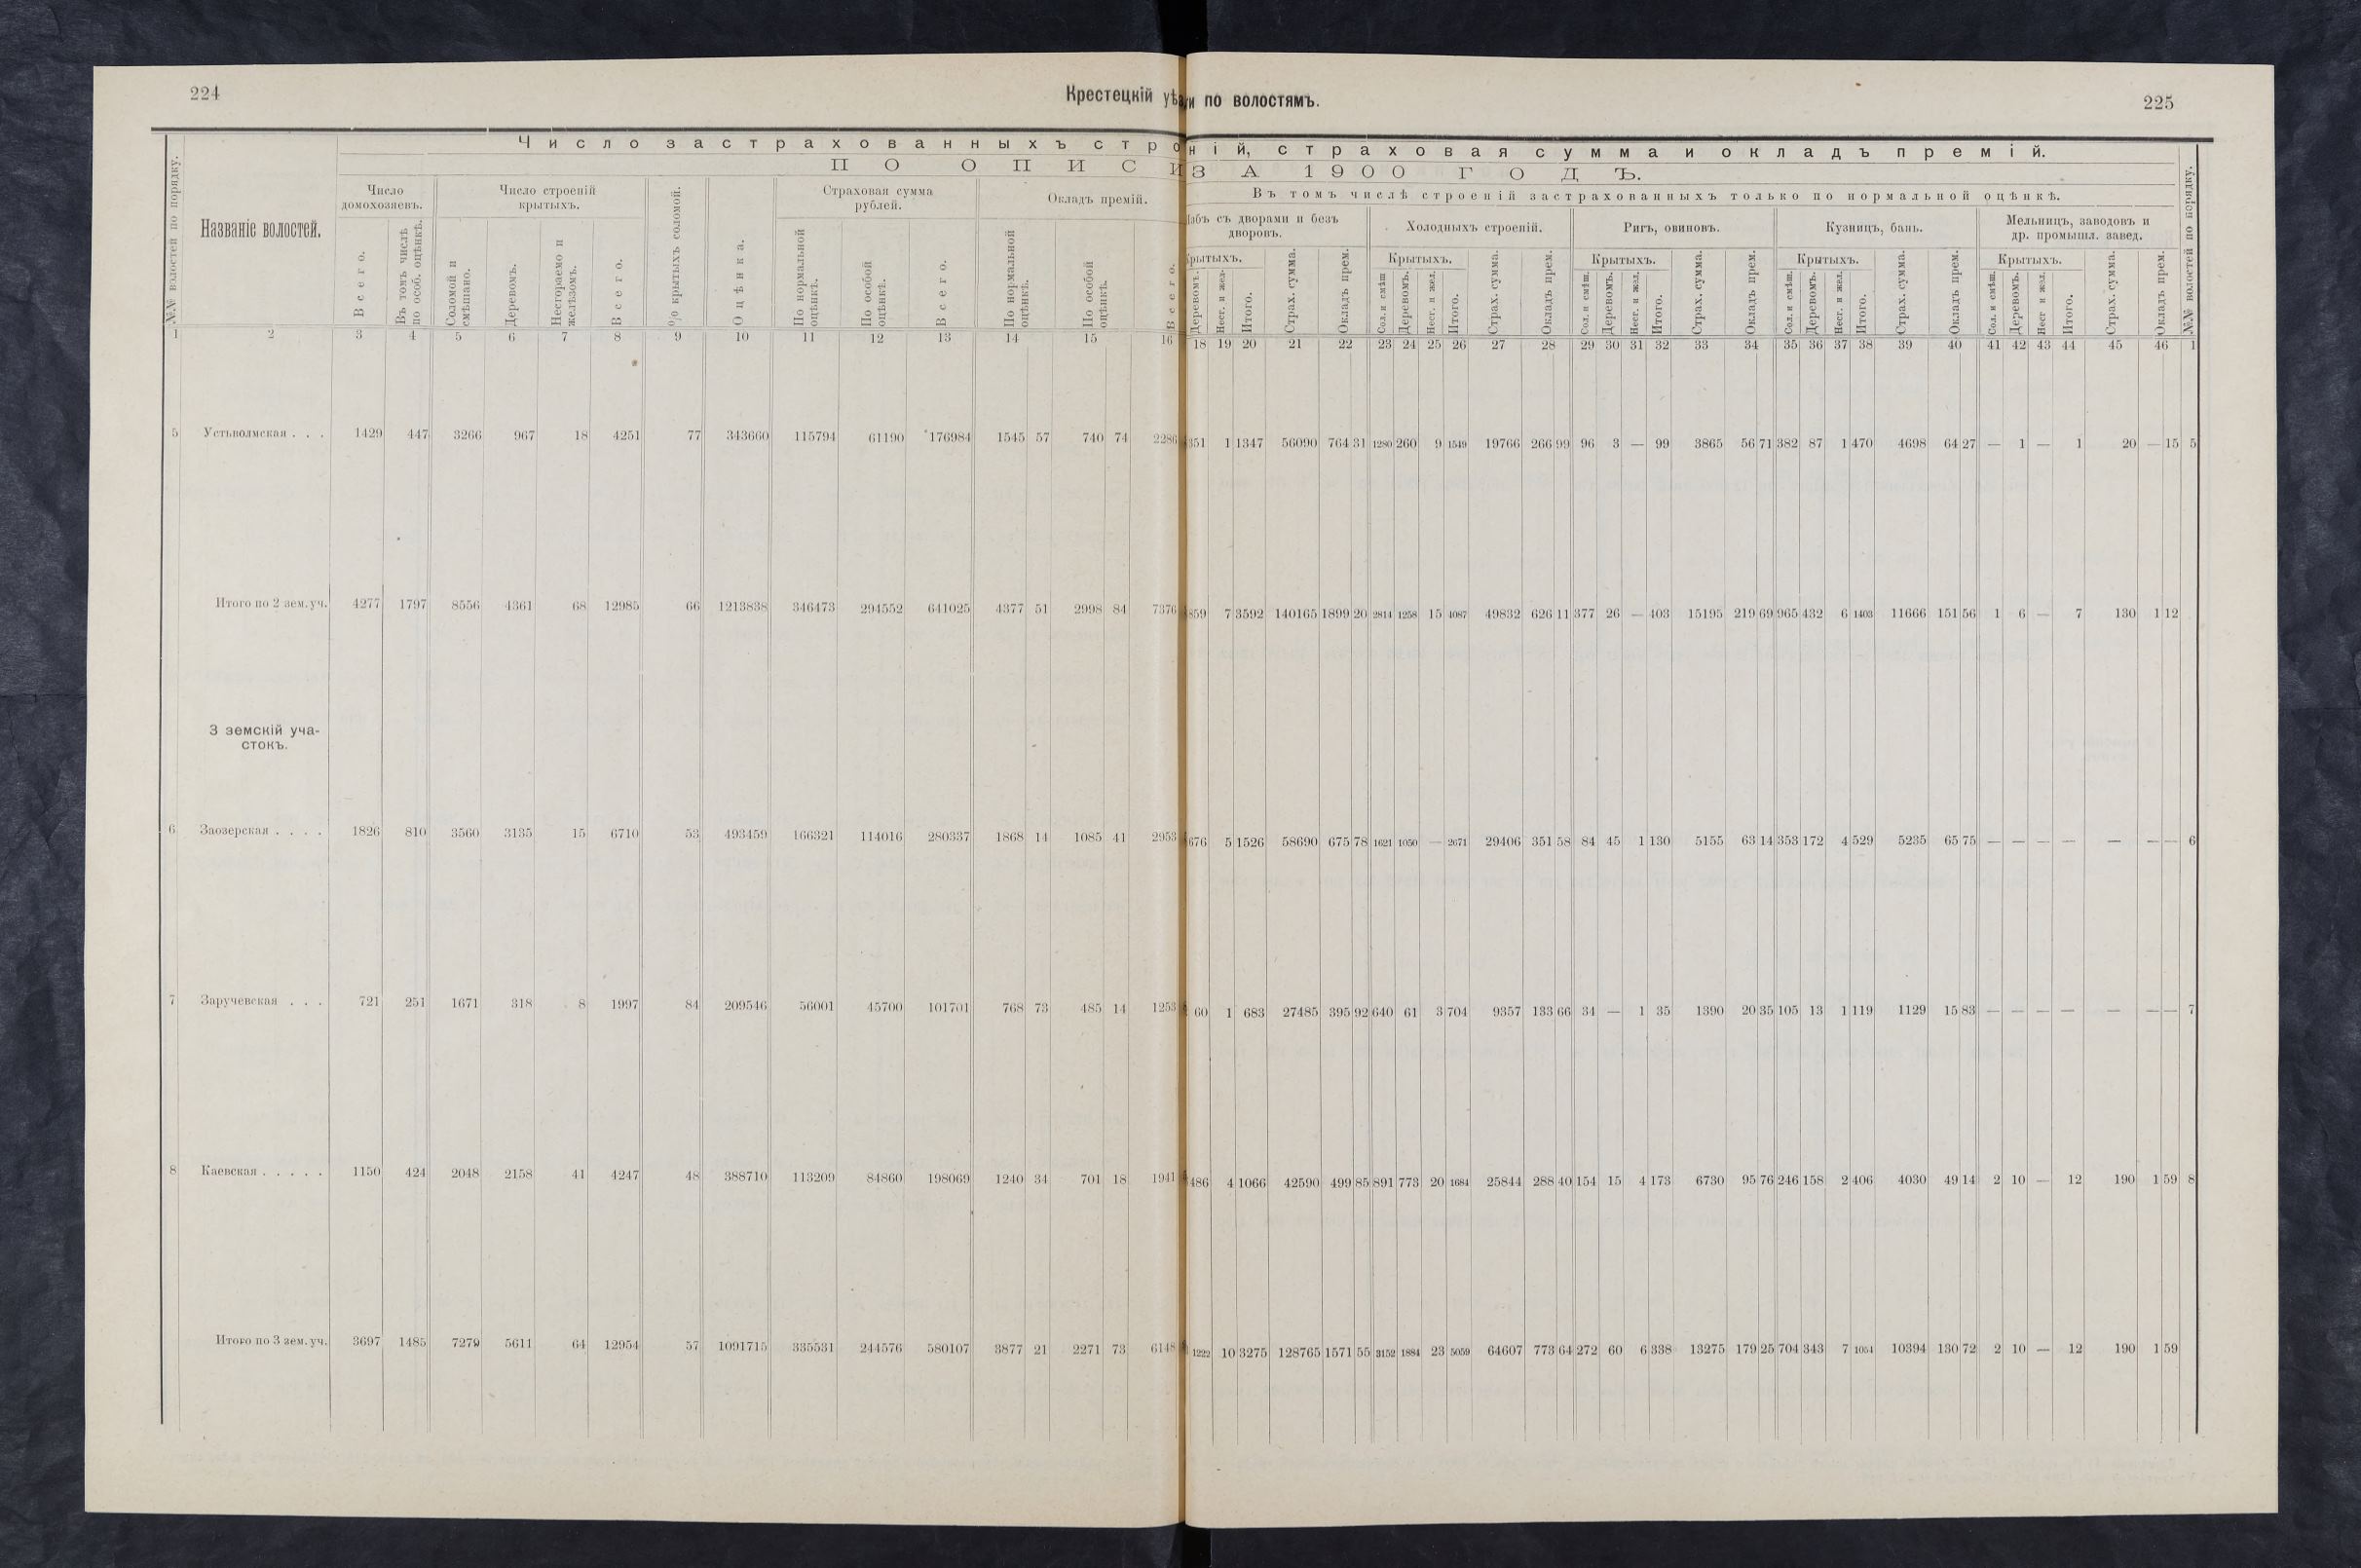 224
Крестецкій уѣ
Число застрахованныхъ стро
ПО ОПИСИ
№№ волостей по порядку.
Названіе волостей.
Число домохозяевъ.
Число строеній крытыхъ.
% крытыхъ соломой.
Оцѣнка.
Страховая сумма рублей.
Окладъ премій.
Всего.
Въ томъ числѣ по особ. оцѣнкѣ.
Соломой и смѣшано.
Деревомъ.
Несгораемо и желѣзомъ.
Всего.
По нормальной оцѣнкѣ.
По особой оцѣнкѣ.
Всего.
По нормальной оцѣнкѣ.
По особой оцѣнкѣ.
Всего.
1 2 3 4 5 6 7 8 9 10 11 12 13 14 15 16
5 Устьволмская . . . 1429 447 3266 967 18 4251 77 343660 115794 61190 176984 1545 57 740 74 2286
Итого по 2 зем. уч. 4277 1797 8556 4361 68 12985 66 1213838 346473 294552 641025 4377 51 2998 84 7376
3 земскій уча-
стокъ.
6 Заозерская . . . . 1826 810 3560 3135 15 6710 53 493459 166321 114016 280337 1868 14 1085 41 2953
7 Заручевская . . . 721 251 1671 318 8 1997 84 209546 56001 45700 101701 768 73 485 14 1253
8 Каевская . . . . . 1150 424 2048 2158 41 4247 48 388710 113209 84860 198069 1240 34 701 18 1941
Итого по 3 зем. уч. 3697 1485 7279 5611 64 12954 57 1091715 335531 244576 580107 3877 21 2271 73 6148
и по волостямъ.
225
ній, страховая сумма и окладъ премій.
ЗА 1900 ГОДЪ.
Въ томъ числѣ строеній застрахованныхъ только по нормальной оцѣнкѣ.
Избъ съ дворами и безъ дворовъ.
Холодныхъ строеній.
Ригъ, овиновъ.
Кузницъ, бань.
Мельницъ, заводовъ и др. промышл. завед.
№№ волостей по порядку.
Крытыхъ.
Деревомъ.
Несг. и жел.
Итого.
Страх. сумма.
Окладъ прем.
Крытыхъ.
Сол. и смѣш
Деревомъ.
Несг. и жел.
Итого.
Страх. сумма.
Окладъ прем.
Крытыхъ.
Сол. и смѣш.
Деревомъ.
Несг. и жел.
Итого.
Страх. сумма.
Окладъ прем.
Крытыхъ.
Сол. и смѣш.
Деревомъ.
Несг. и жел.
Итого.
Страх. сумма.
Окладъ прем.
Крытыхъ.
Сол. и смѣш.
Деревомъ.
Несг и жел.
Итого.
Страх. сумма.
Окладъ прем.
18 19 20 21 22 23 24 25 26 27 28 29 30 31 32 33 34 35 36 37 38 39 40 41 42 43 44 45 46 1
351 1 1347 56090 764 31 1280 260 9 1549 19766 266 99 96 3 — 99 3865 56 71 382 87 1 470 4698 64 27 — 1 — 1 20 — 15 5
859 7 3592 140165 1899 20 2814 1258 15 4087 49832 626 11 377 26 — 403 15195 219 69 965 432 6 1403 11666 151 56 1 6 — 7 130 1 12
676 5 1526 58690 675 78 1621 1050 — 2671 29406 351 58 84 45 1 130 5155 63 14 353 172 4 529 5235 65 75 — — — — — — — 6
60 1 683 27485 395 92 640 61 3 704 9357 133 66 34 — 1 35 1390 20 35 105 13 1 119 1129 15 83 — — — — — — — 7
486 4 1066 42590 499 85 891 773 20 1684 25844 288 40 154 15 4 173 6730 95 76 246 158 2 406 4030 49 14 2 10 — 12 190 1 59 8
1222 10 3275 128765 1571 55 3152 1884 23 5059 64607 773 64 272 60 6 338 13275 179 25 704 343 7 1054 10394 130 72 2 10 — 12 190 1 59